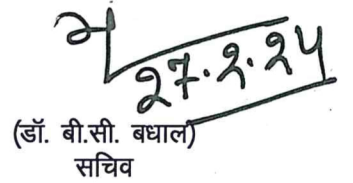 27.2.24
(डॉ. बी.सी. बधाल)
सचिव